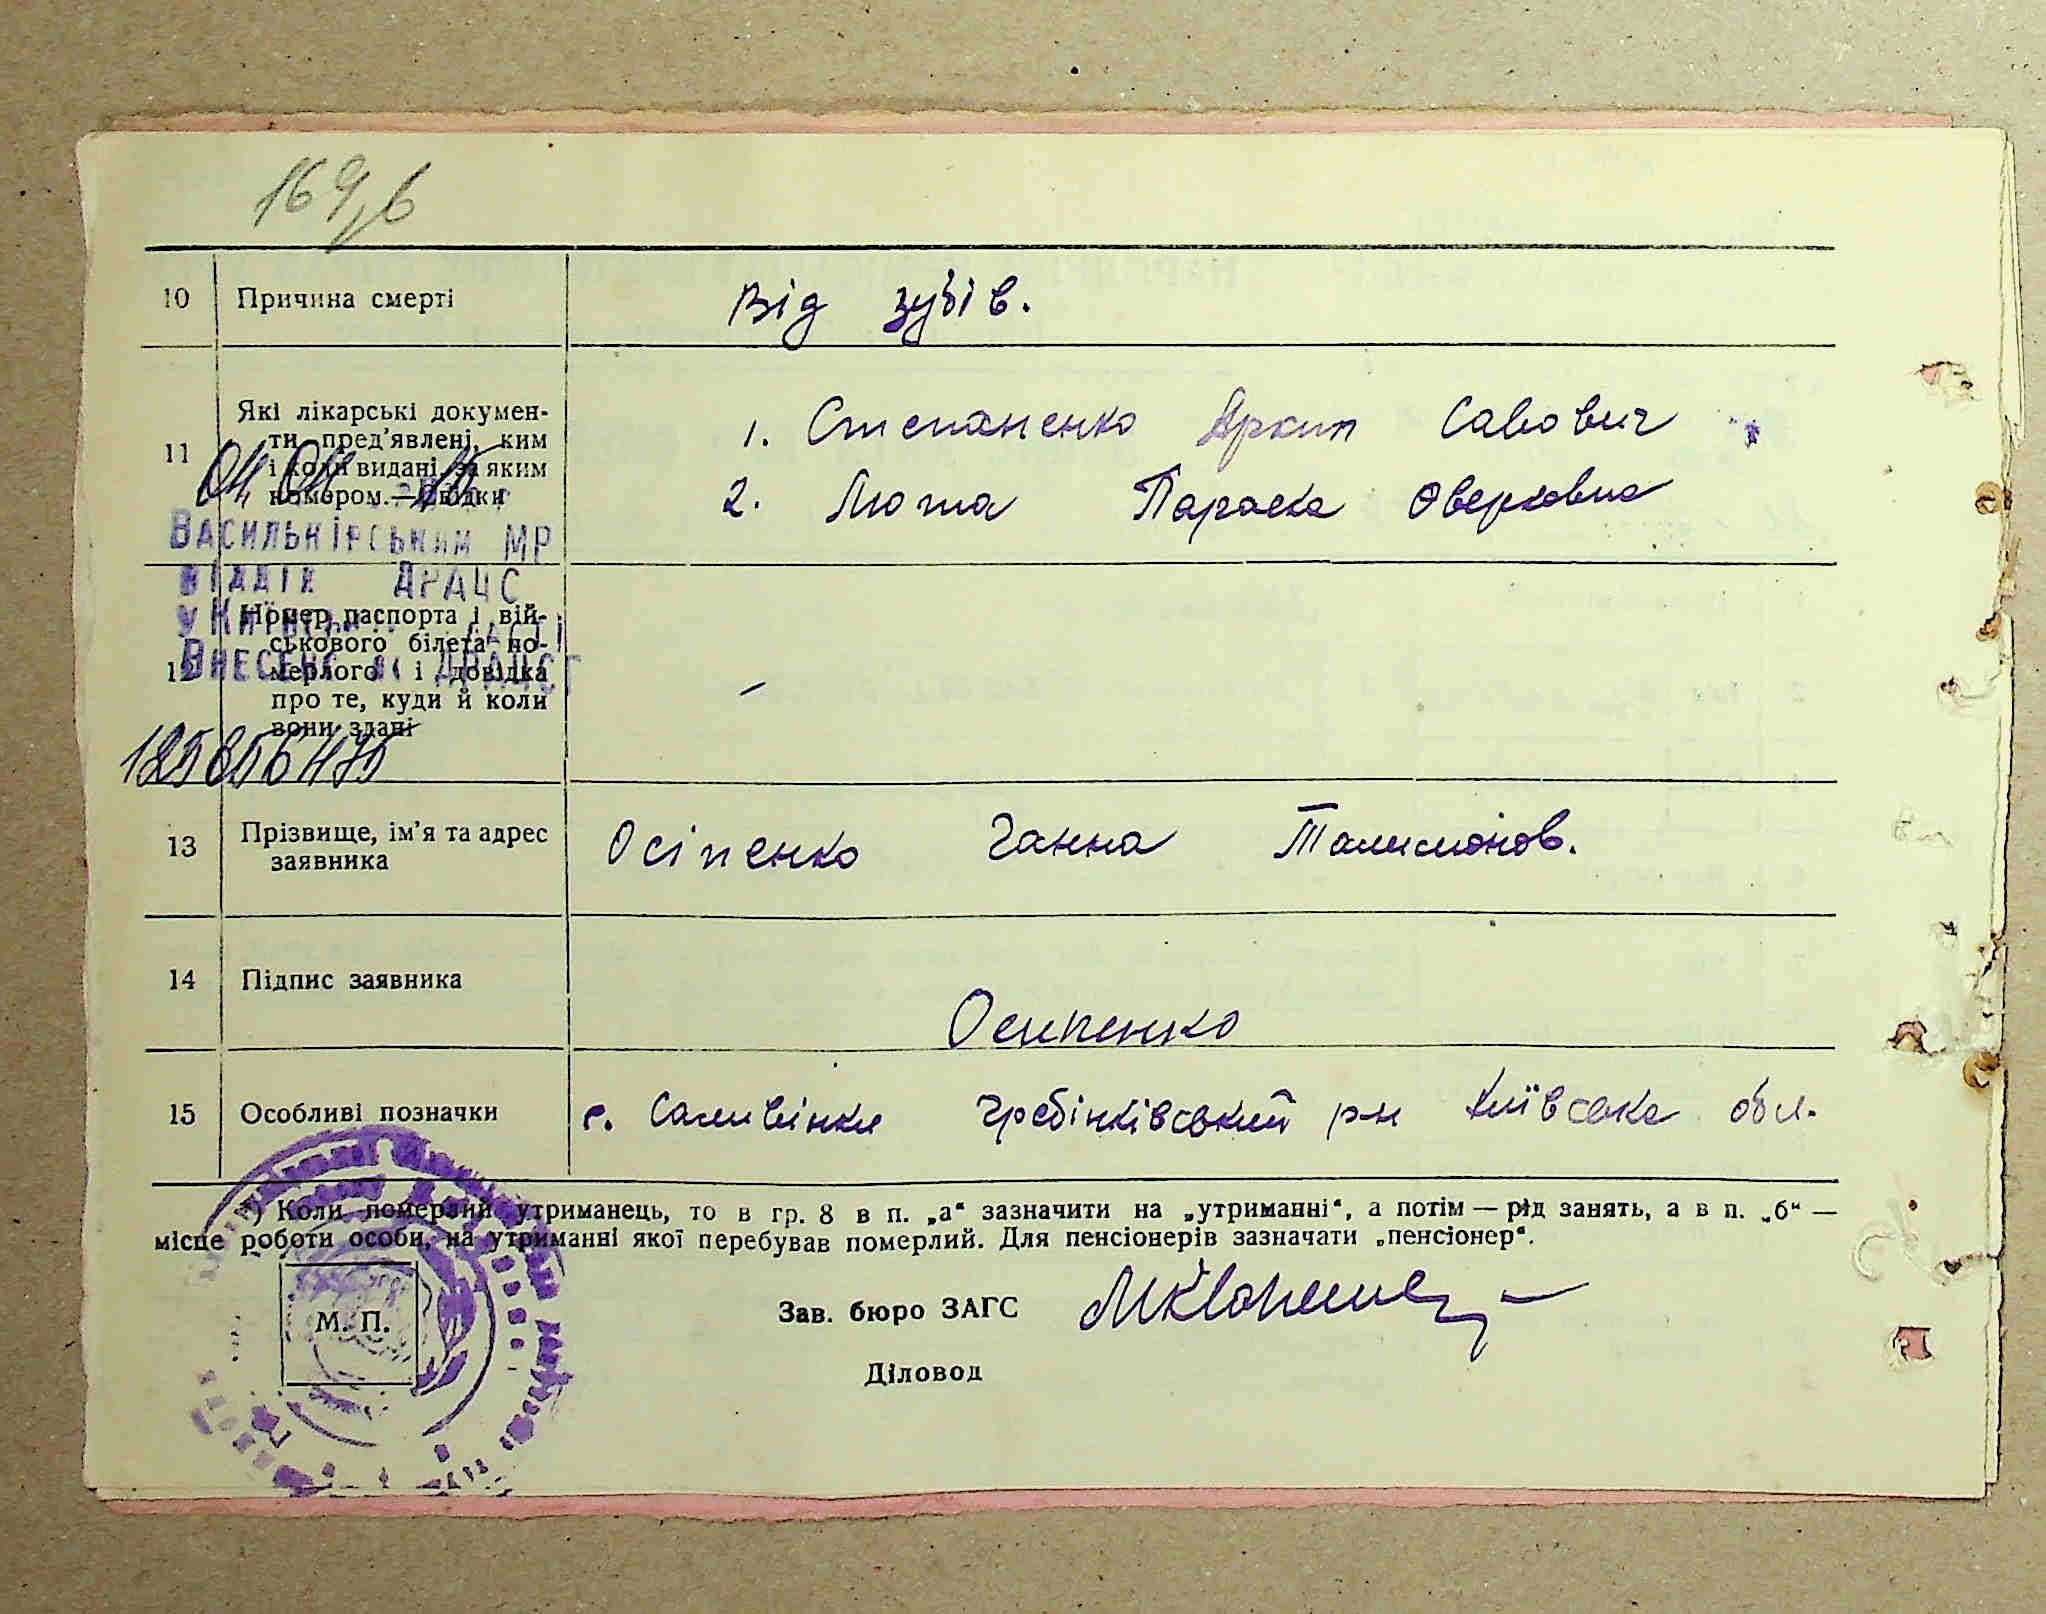 10 Причина смерті Від зубів.
11 Які лікарські докумен-
ти пред'явлені, ким
і коли видані, за яким
номером.—Свідки
1. Степаненко Аркип Савович
2. Люта Параска Оверковна
Васильківським МР
відділ ДРАЦС
Внесено ДРАЦСГ
125856475
12 Номер паспорта і вій-
ськового білета по-
мерлого і довідка
про те, куди й коли
вони здані
–
13 Прізвище, ім'я та адрес
заявника
Осіпенко Ганна Талимонов.
14 Підпис заявника Осипенко
15 Особливі позначки с. Саливінки Гребінківський р-н Київська обл.
*) Коли померлий утриманець, то в гр. 8 в п. „а“ зазначити на „утриманні“, а потім — рід занять, а в п. „б“ —
місце роботи особи, на утриманні якої перебував померлий. Для пенсіонерів зазначати „пенсіонер“.
М. П.
Зав. бюро ЗАГС
Діловод